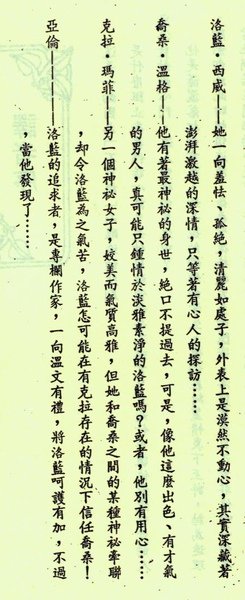 洛藍‧西威——她一向羞怯、孤絶,清麗如處子,外表上是漠然不動心,其實深藏著
澎湃激越的深情,只等著有心人的探訪……
喬桑‧溫格——他有著最神祕的身世,絶口不提過去,可是,像他這麼出色、有才氣
的男人,真可能只鍾情於淡雅素淨的洛藍嗎?或者,他別有用心……
克拉‧瑪菲——另一個神祕女子,姣美而氣質高雅,但她和喬桑之間的某種神祕牽聯
,却令洛藍為之氣苦,洛藍怎可能在有克拉存在的情況下信任喬桑!
亞倫————洛藍的追求者,是專欄作家,一向溫文有禮,將洛藍呵護有加,不過
,當他發現了……